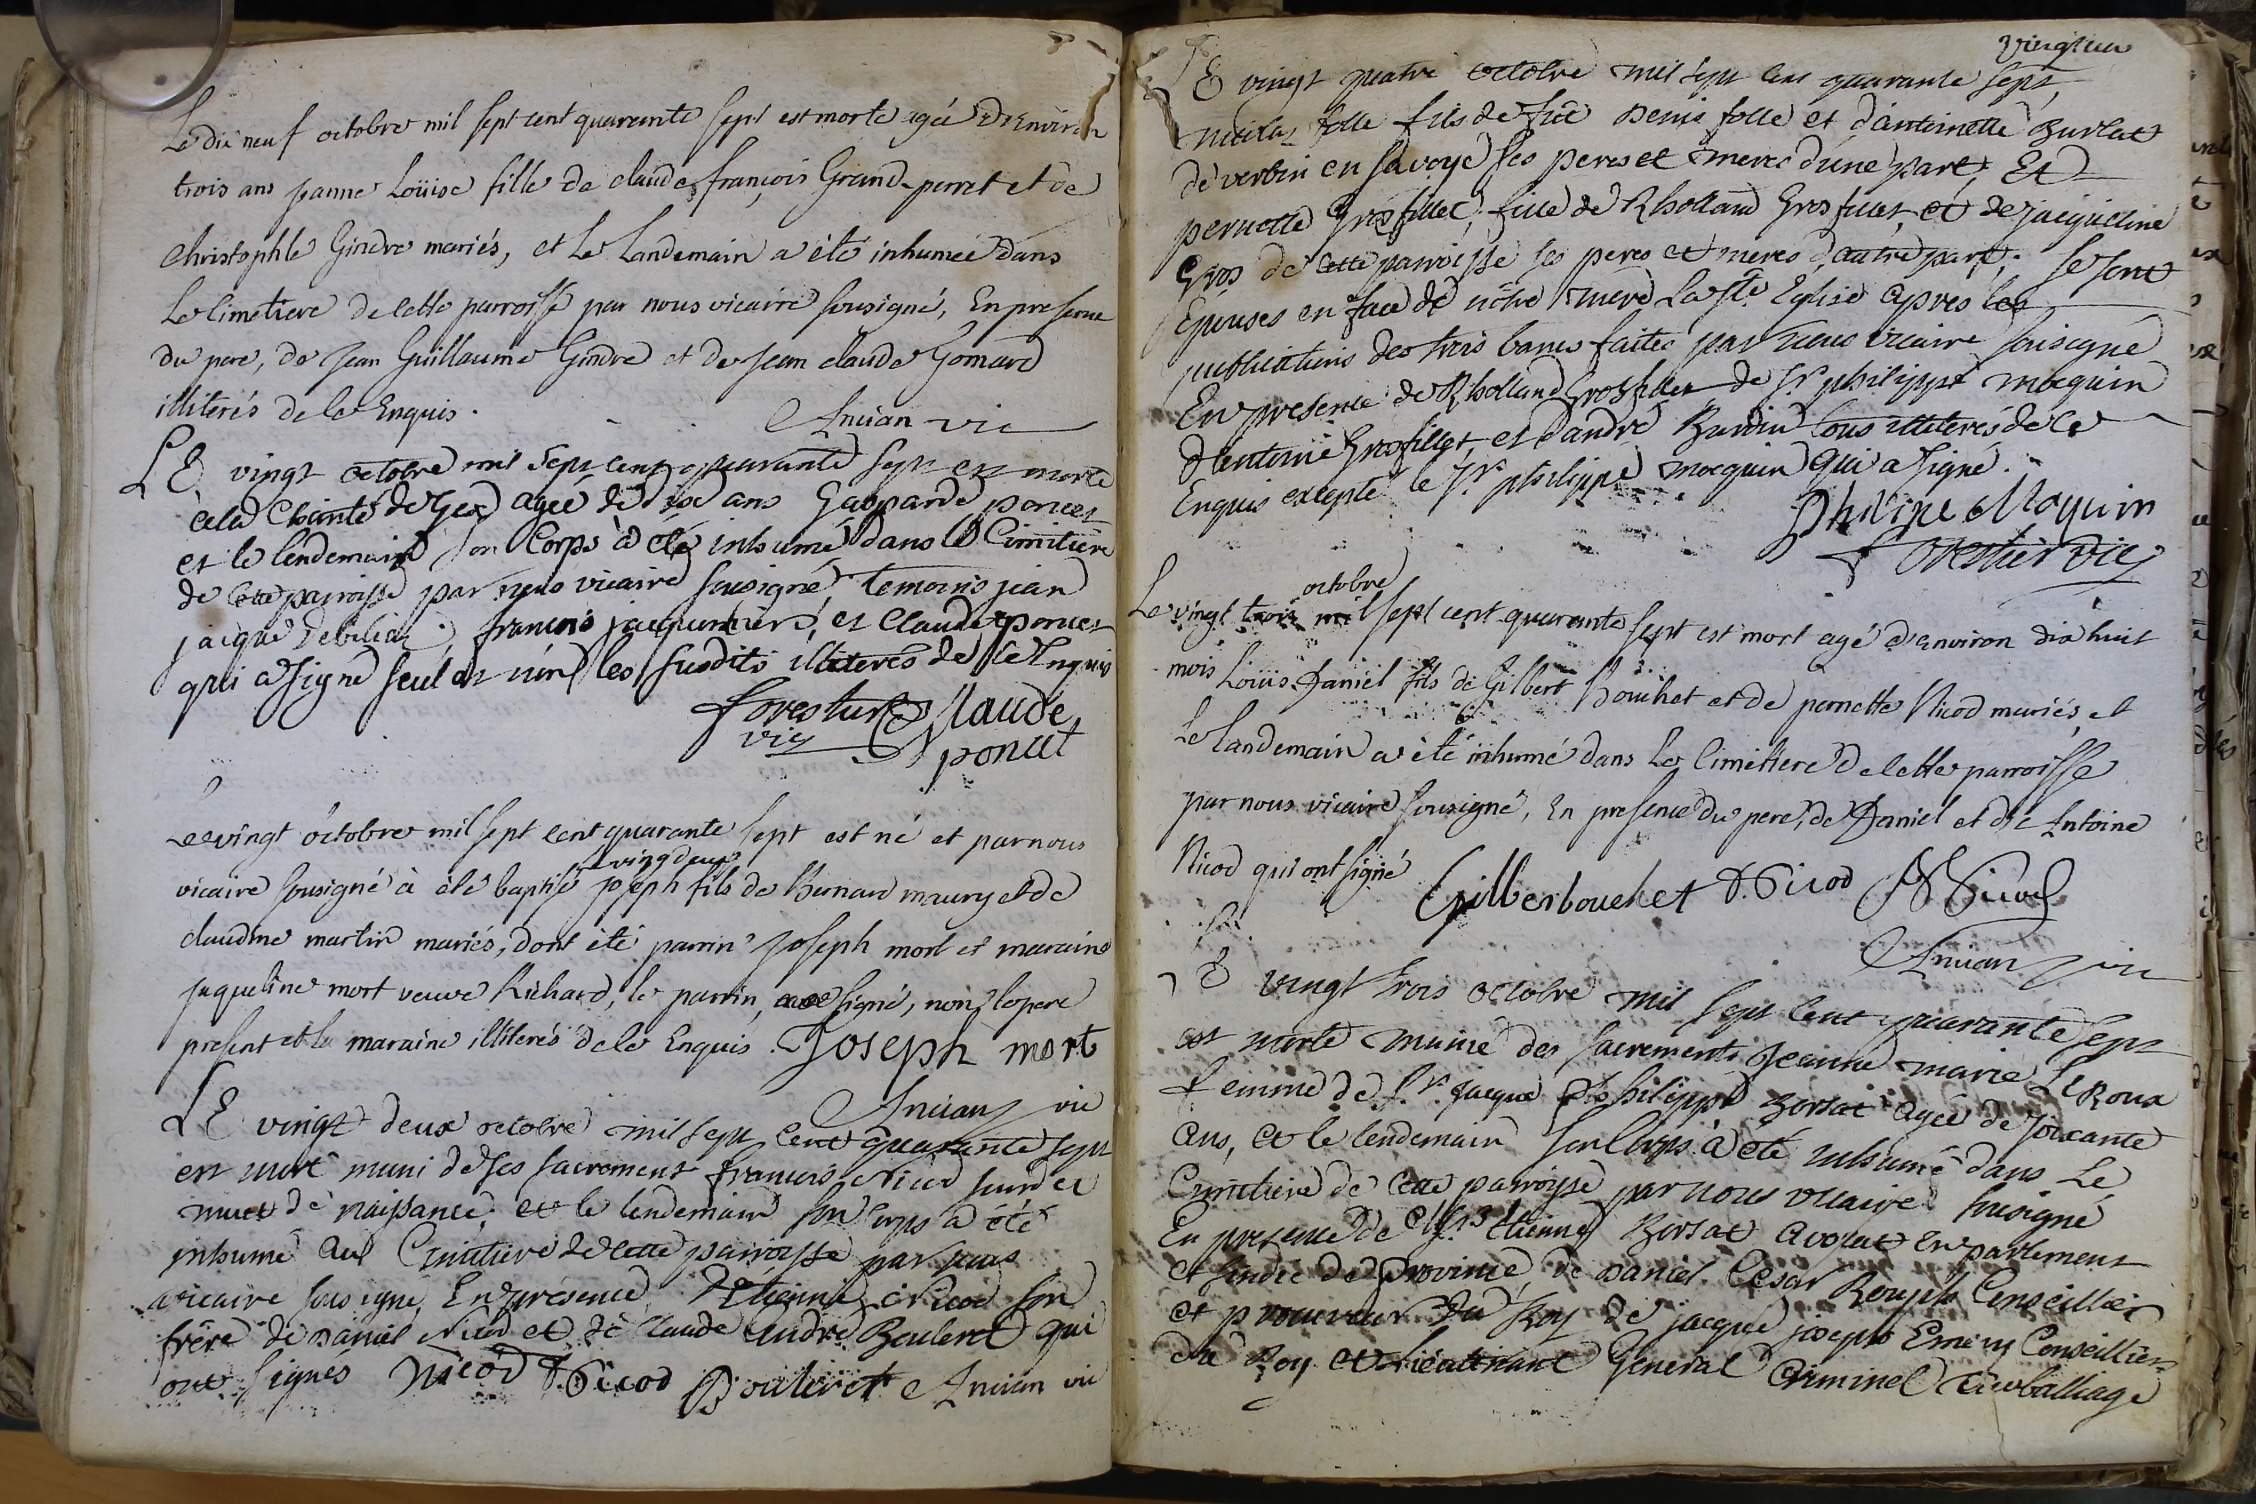 Le dix neuf octobre mil sept cent quarante sept est morte agée d'Environ
trois ans janne Loüise fille de claude françois Grand-perret et de
christophle Gindre mariés, et Le Landemain a été inhumée dans
Le Cimetiere de Cette parroisse par nous vicaire sousigné, En presence
du pere, de Jean Guillaume Gindre et de Jean claude Gomard
illiterés de le Enquis.
Ancian vic
LE vingt octobre mil sept cent quarante sept est morte
à la Charité de Gex agée de dix ans Gasparde poncet
et le lendemain son Corps à été inhumé dans le Cimitiere
de Cette parroisse par nous vicaire sousigné, temoins jean
jaque françois jacquemier, et Claude poncet
qui a signé seul et non les susdits illiterés de ce Enquis
forestier Claude
vic poncet
Le vingt octobre mil sept cent quarante sept est né et par nous
vingt deux
vicaire sousigné à été baptisé joseph fils de Bernard maury et de
claudine martin mariés, dont été parrin Joseph mort et maraine
jaqueline mort veuve Richard, le parrin a signé, non le pere
present et la maraine illiterés de le Enquis. Joseph mort
Ancian vic
LE vingt deux octobre mil sept cent quarante sept
est mort muni de ses sacrement francois Nicod sourd et
muet de naissance, et le lendemain son corps a été
inhumé au Cimitiere de cette parroisse par nous
vicaire sousigné, En présence d'Etienne Nicod son
frère de Daniel Nicod et de Claude André Bouleret qui
ont signés Nicod D. Nicod Bouleret Ancian vic
vingt un
LE vingt quatre octobre mil sept cent quarante sept,
Nicolas folle fils de feu Denis folle et d'antoinette Burlat
de verbin en savoye ses peres et meres d'une part, Et
pernette Grosfillet, fille de Rholland Grosfillet et de jacqueline
Gros de Cette parroisse ses peres et meres d'autre part; se sont
Epouses en face de nôtre mere la Ste Eglise apres les
publications des trois bancs faites par nous vicaire sousigné
En presence de Rholland Grosfillet de Sr philippe moquin
d'antoine Grosfillet, et d'andré Burdin tous illiterés de ce
Enquis excepté le Sr philippe moquin qui a signé.
Philipe Moquin
forestier vic
octobre
Le vingt trois mil sept cent quarante sept est mort agé d'environ dix huit
mois Louis Daniel fils de Gilbert Bouchet et de pernette Nicod mariés, et
Le Landemain a été inhumé dans Le Cimétiere de Cette parroisse
par nous vicaire sousigné, En presence du pere, de Daniel et de Antoine
Nicod qui ont signé
Gilberbouchet D. Nicod A Nicod
Ancian vic
LE vingt trois octobre mil sept cent quarante sept
est morte munie des sacrements Jeanne marie LeRoux
femme de Sr. jaque philippe Borsat agée de soixante
ans, et le lendemain son Corps à été inhumé dans Le
Cimitiere de Cette parroisse par nous vicaire sousigné
En presence de Etienne Borsat avocat en parlement
et sindic de province, de Daniel Cesar Rouph Conseillier
et procureur du Roy de jacque joseph Emery Conseillier
du Roy et Lieutenant General Criminel au balliage